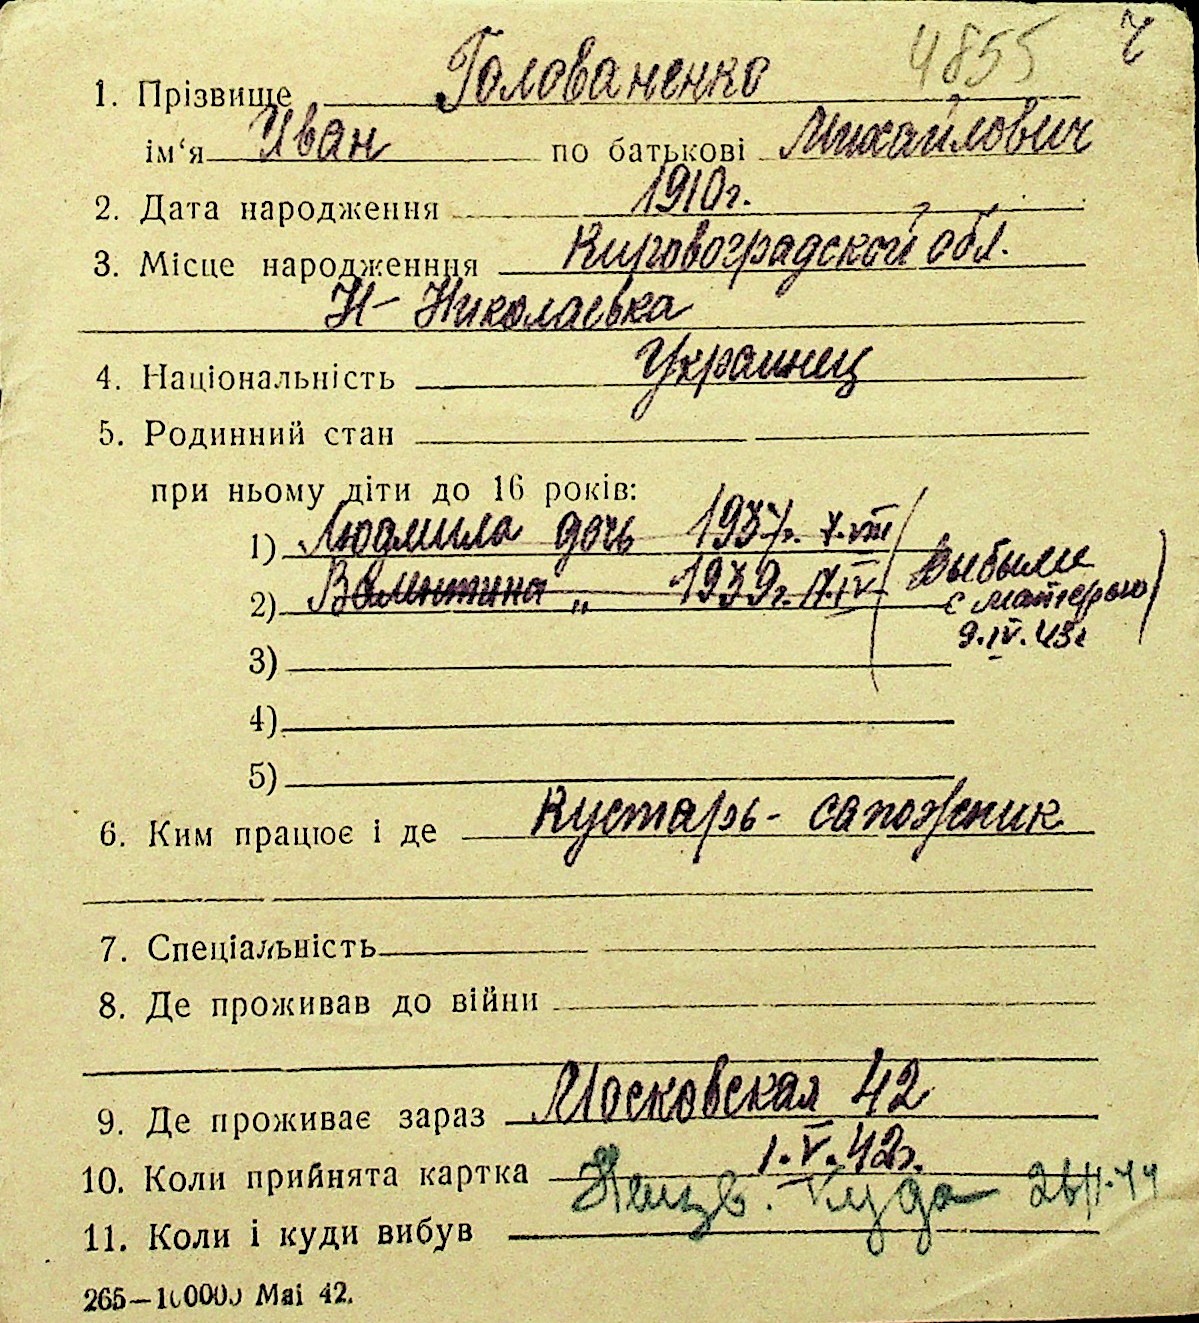 4855 ч
1. Прізвище Голованенко
ім‘я Иван по батькові Михайлович
2. Дата народження 1910г.
3. Місце народженння Кировоградской обл.
Н-Николаевка
4. Національність Украинец
5. Родинний стан
при ньому діти до 16 років:
1) Людмила дочь 1937г. X.VIII
2) Валентина „ 1939г. IX.IV
Выбыли
с матерью
9.IV.43г
3)
4)
5)
6. Ким працює і де Кустарь-сапожник
7. Спеціальність
8. Де проживав до війни
9. Де проживає зараз Московская 42
10. Коли прийнята картка 1.V.42г.
11. Коли і куди вибув Неизв. куда 26/II-44
265—100000 Маі 42.